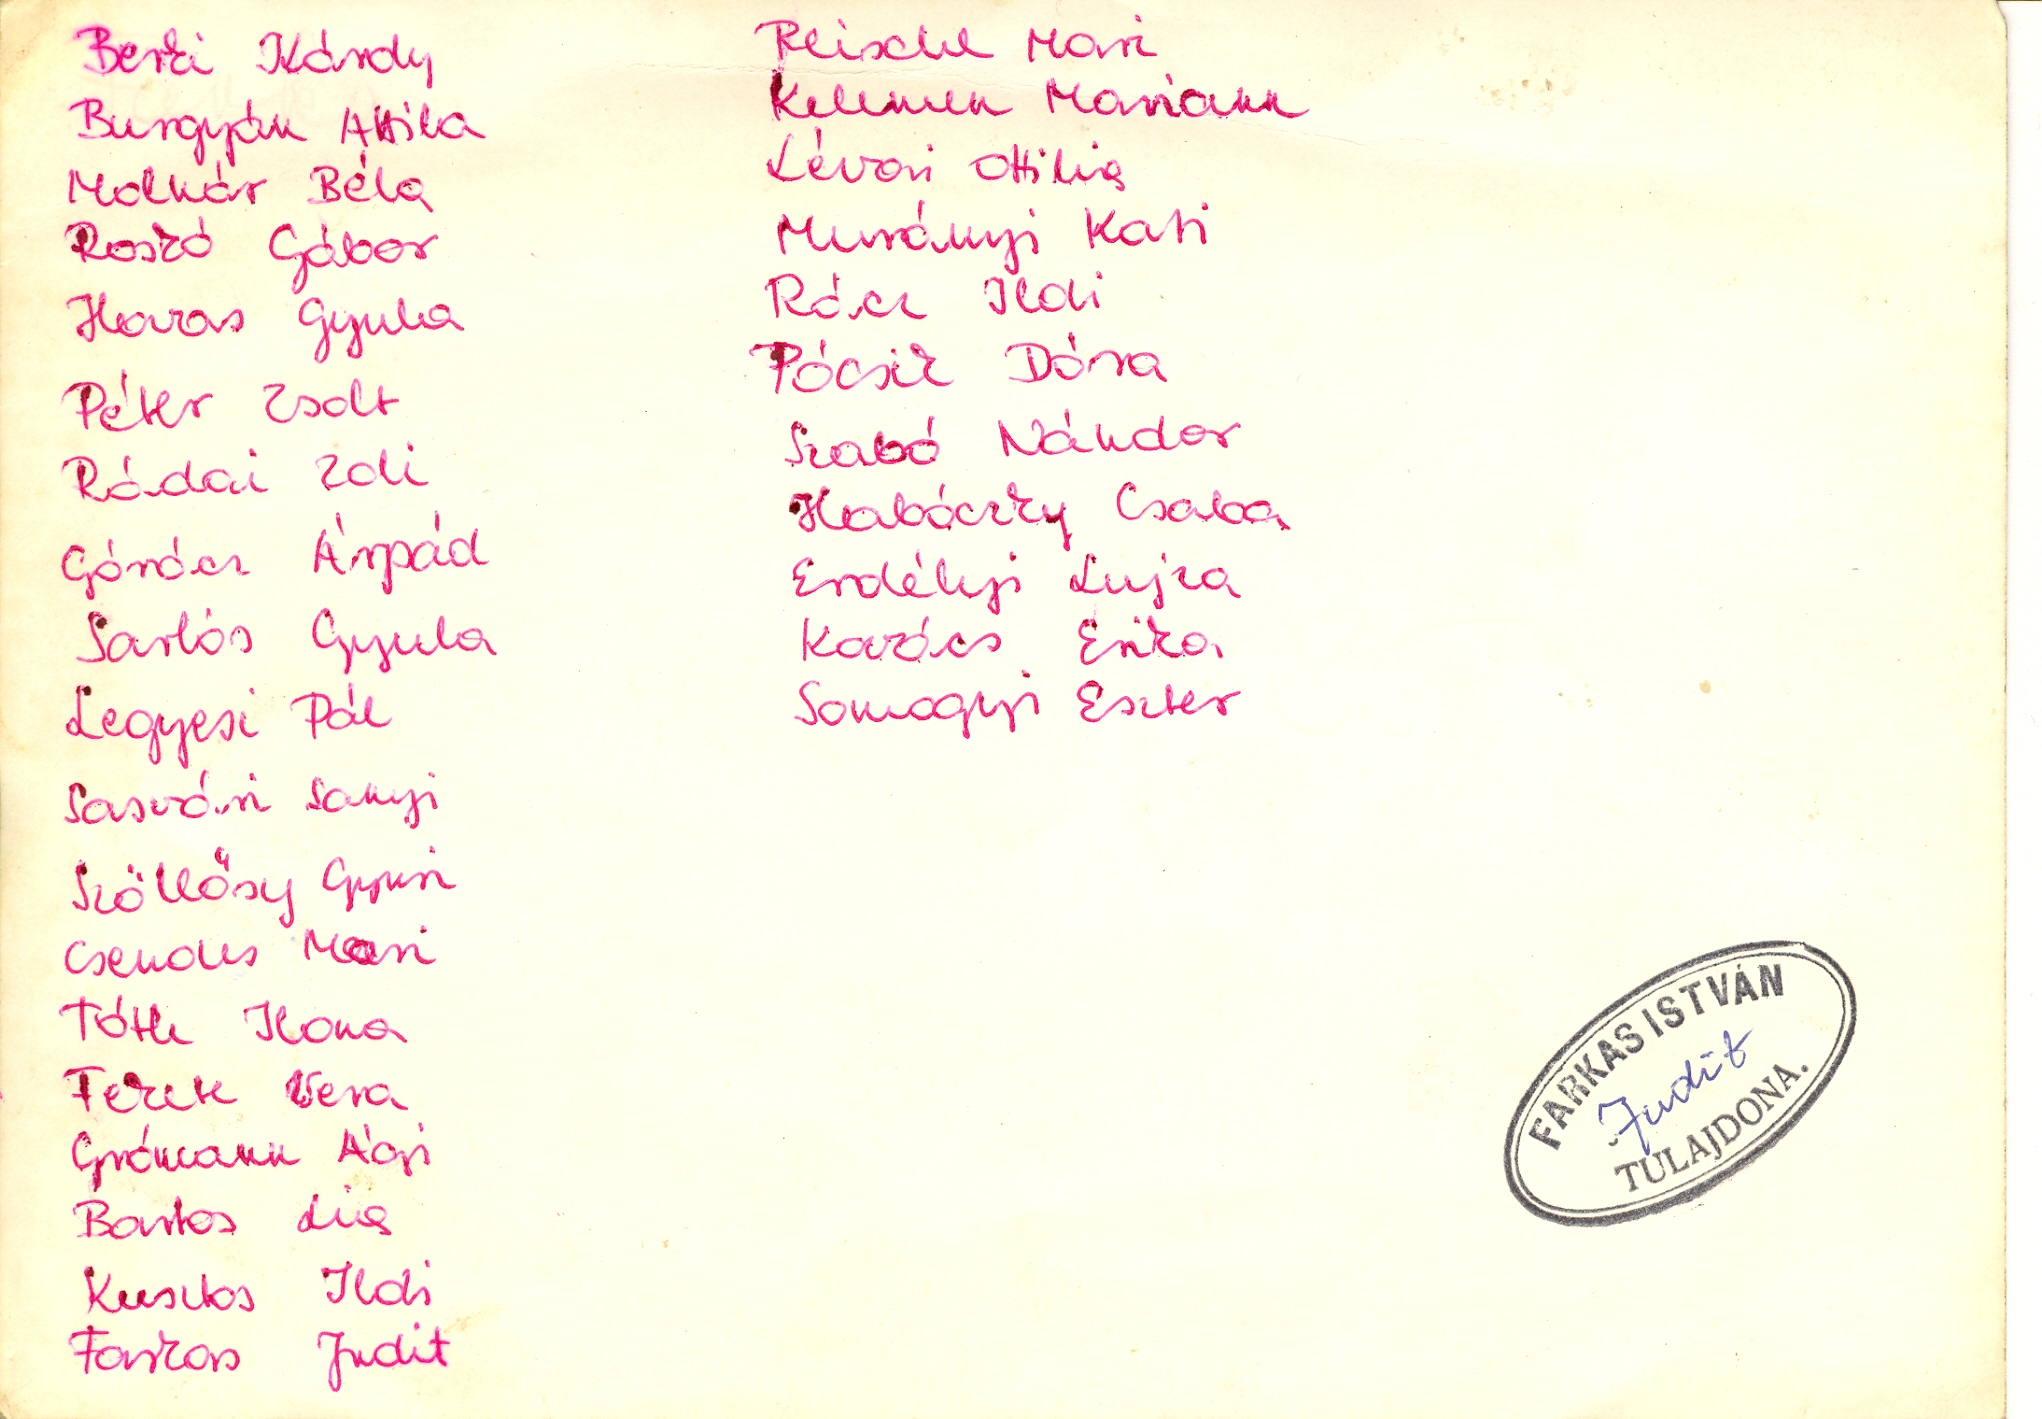 Berki Károly
Burgyán Attila
Molnár Béla
Roskó Gábor
Havas Gyula
Péter Zsolt
Rádai Zoli
Górácz Árpád
Sarlós Gyula
Legyesi Pál
Sasvári Sanyi
Szöllősy Gyuri
Csendes Mari
Tóth Ilona
Fekete Vera
Grómann Ági
Bartos Lia
Kusztos Ildi
Farkas Judit
Reischl Mari
Kelemen Mariann
Lévai Ottilia
Murányi Kati
Rácz Ildi
Pócsik Dóra
Szabó Nándor
Habóczky Csaba
Erdélyi Lujza
Kovács Erika
Somogyi Eszter
FARKAS ISTVÁN
Judit
TULAJDONA.